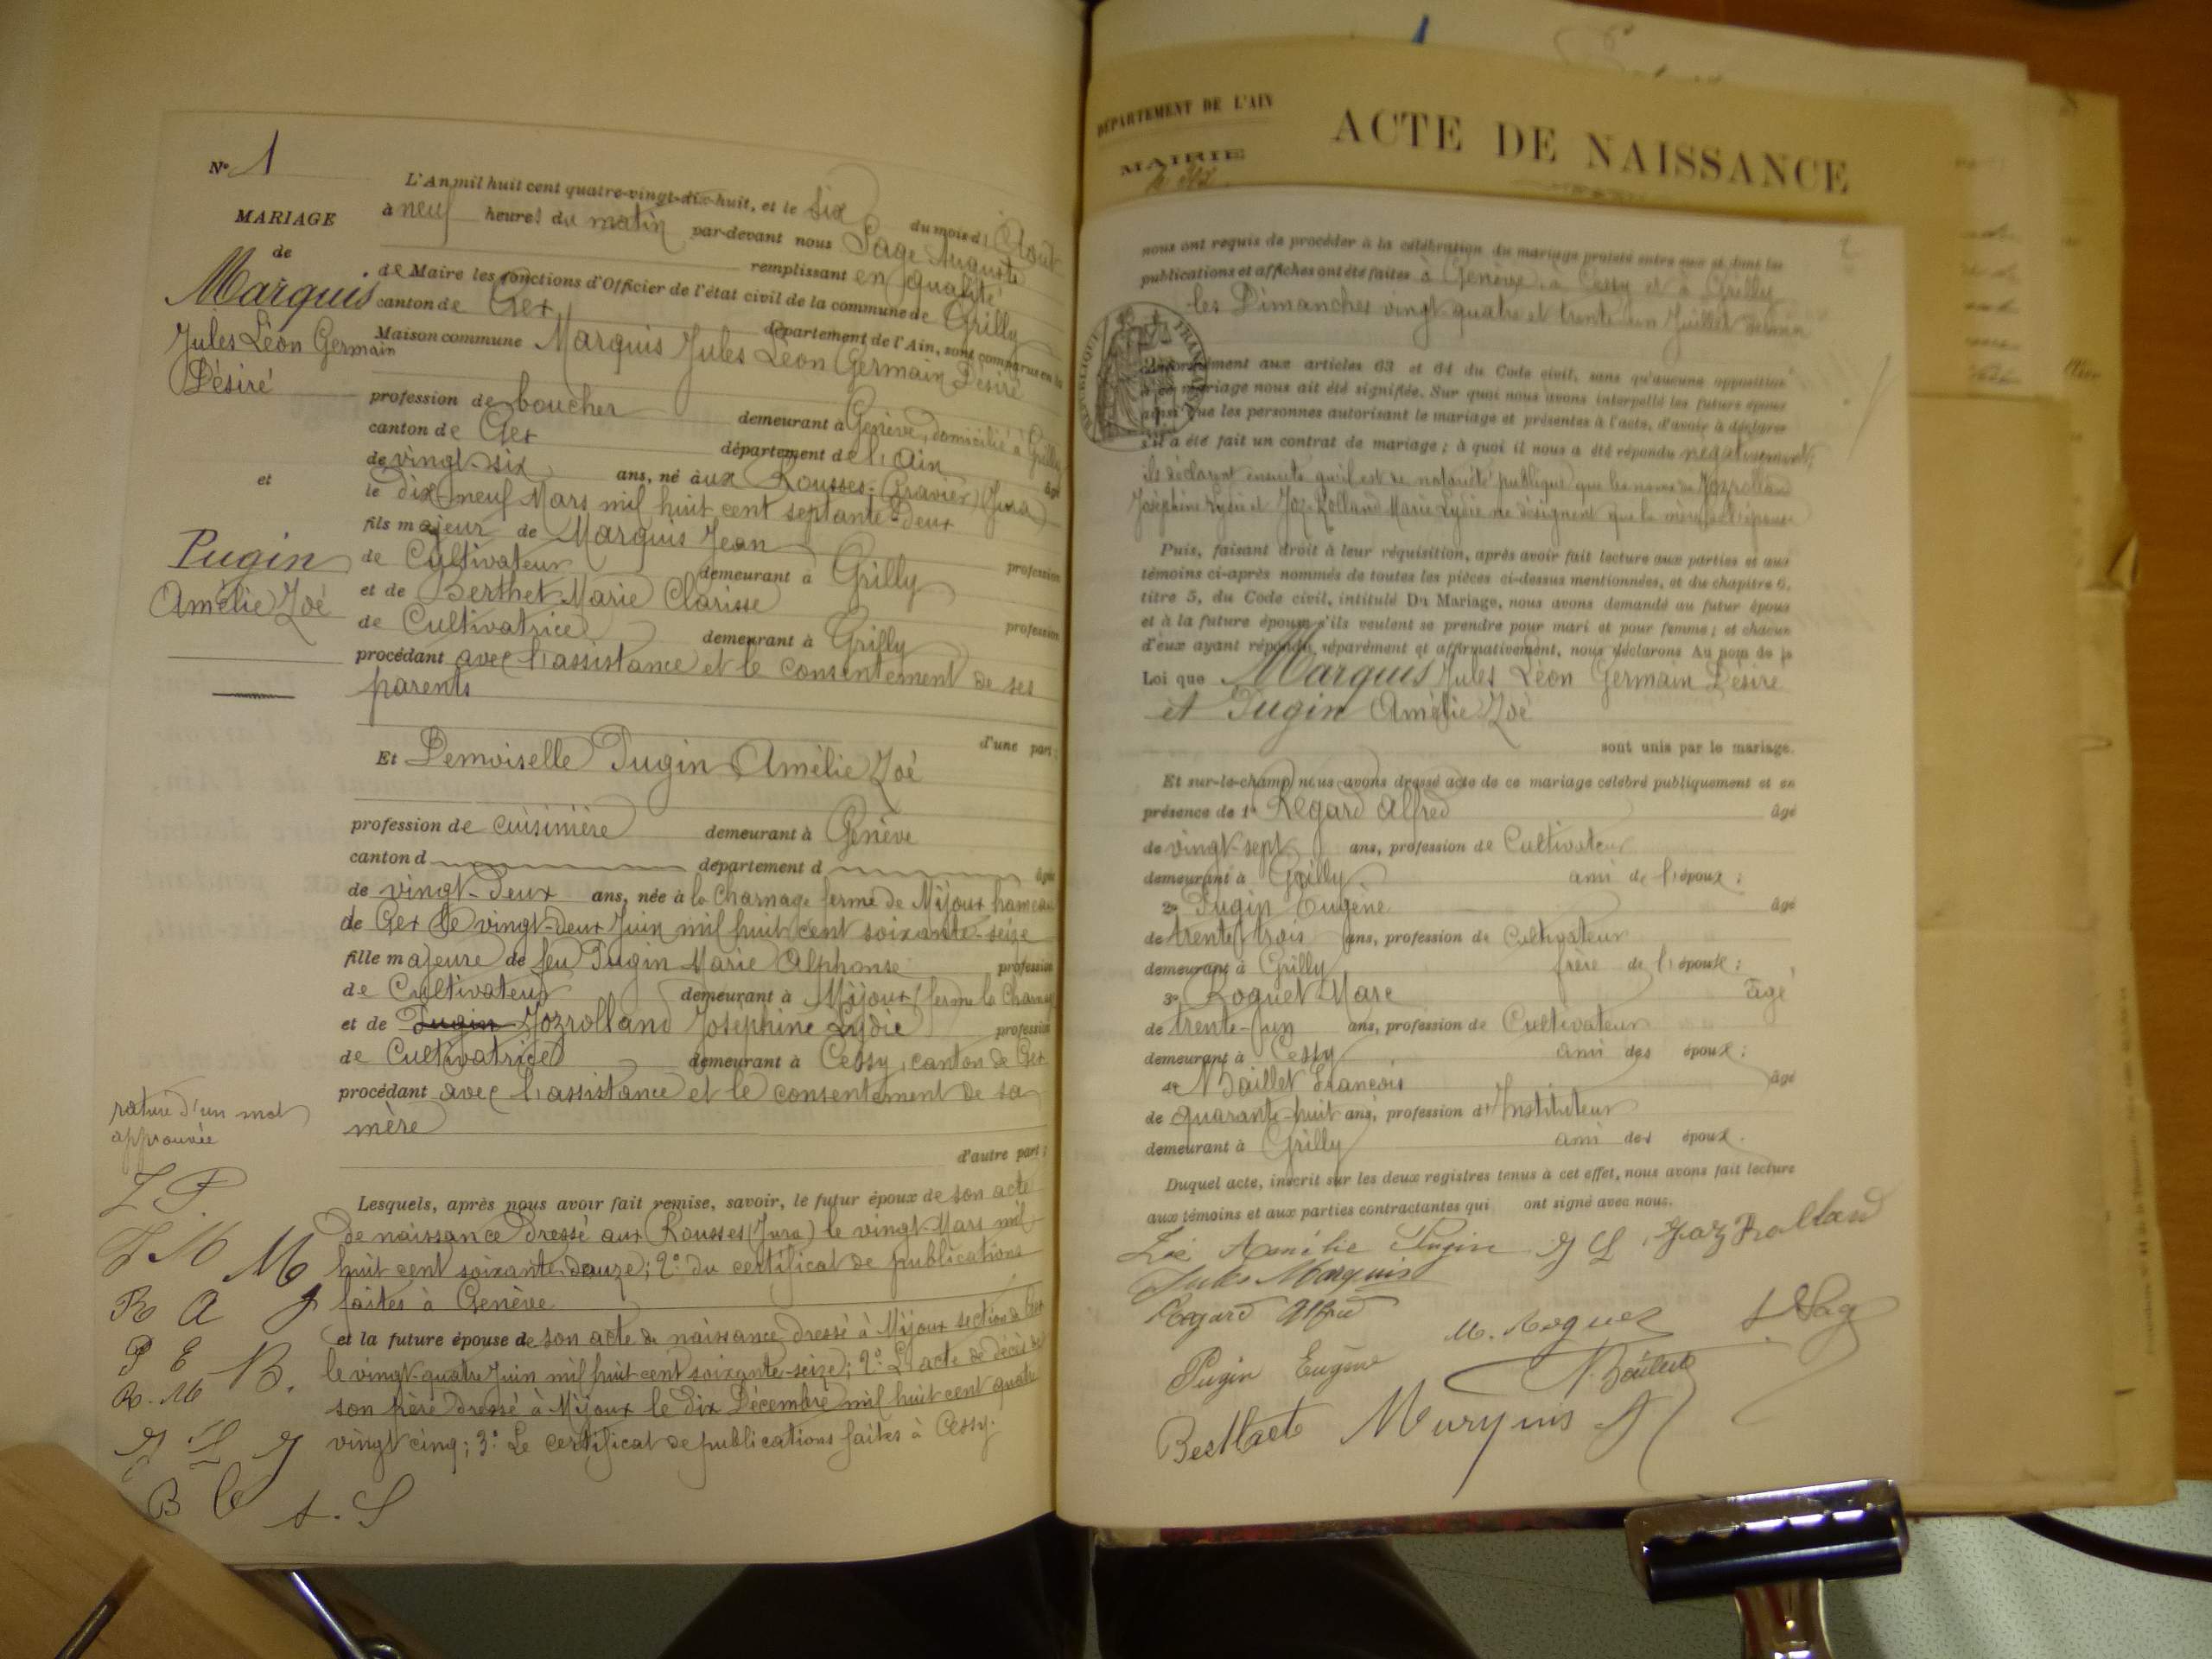 N° 1
MARIAGE
de
Marquis
Jules Léon Germain
Désiré
et
Pugin
Amélie Zoé
L'An mil huit cent quatre-vingt-dix-huit, et le six du mois d'Août
à neuf heures du matin par-devant nous Sage Auguste
remplissant en qualité
de Maire les fonctions d'Officier de l'état civil de la commune de Grilly
canton de Gex département de l'Ain, sont comparus en la
Maison commune Marquis Jules Léon Germain Désiré
profession de boucher demeurant à Genève, domicilié à Grilly
canton de Gex département de l'Ain âgé
de vingt-six ans, né aux Rousses (Gravier) (Jura)
le dix-neuf Mars mil huit cent septante-deux
fils majeur de Marquis Jean profession
de Cultivateur demeurant à Grilly
et de Berthet Marie Clarisse profession
de Cultivatrice demeurant à Grilly
procédant avec l'assistance et le consentement de ses
parents
d'une part;
Et Demoiselle Pugin Amélie Zoé
profession de cuisinière demeurant à Genève
canton d département d âgée
de vingt-deux ans, née à la Charnage ferme de Mijoux hameau
de Gex le vingt-deux Juin mil huit cent soixante-seize
fille majeure de feu Pugin Marie Alphonse profession
de Cultivateur demeurant à Mijoux (ferme la Charnage
et de Pugin Jozrolland Joséphine Lydie profession
de Cultivatrice demeurant à Cessy, canton de Gex
procédant avec l'assistance et le consentement de sa
mère
d'autre part;
rature d'un mot
approuvée
Z P.
J M M
R A J
P E B.
R. M
J L J
B C
A. S
Lesquels, après nous avoir fait remise, savoir, le futur époux de son acte
de naissance dressé aux Rousses (Jura) le vingt Mars mil
huit cent soixante-douze; 2° du certificat de publications
faites à Genève
et la future épouse de son acte de naissance dressé à Mijoux section de Gex
le vingt-quatre Juin mil huit cent soixante-seize; 2° L'acte de décès de
son père dressé à Mijoux le dix Décembre mil huit cent quatre
vingt cinq; 3° Le certificat de publications faites à Cessy.
DÉPARTEMENT DE L'AIN
MAIRIE
de Gex
ACTE DE NAISSANCE
2
nous ont requis de procéder à la célébration du mariage projeté entre eux et dont les
publications et affiches ont été faites à Genève, à Cessy et à Grilly
les Dimanches vingt-quatre et trente-un Juillet dernier
conformément aux articles 63 et 64 du Code civil, sans qu'aucune opposition
à ce mariage nous ait été signifiée. Sur quoi nous avons interpellé les futurs époux
ainsi que les personnes autorisant le mariage et présentes à l'acte, d'avoir à déclarer
s'il a été fait un contrat de mariage; à quoi il nous a été répondu négativement;
ils déclarent ensuite qu'il est de notoriété publique que les noms de Jozrolland
Joséphine Lydie et Joz-Rolland Marie Lydie ne désignent que la mère de l'épouse
Puis, faisant droit à leur réquisition, après avoir fait lecture aux parties et aux
témoins ci-après nommés de toutes les pièces ci-dessus mentionnées, et du chapitre 6,
titre 5, du Code civil, intitulé Du Mariage, nous avons demandé au futur époux
et à la future épouse s'ils veulent se prendre pour mari et pour femme; et chacun
d'eux ayant répondu séparément et affirmativement, nous déclarons Au nom de la
Loi que Marquis Jules Léon Germain Désiré
et Pugin Amélie Zoé
sont unis par le mariage.
Et sur-le-champ nous avons dressé acte de ce mariage célébré publiquement et en
présence de 1° Regard Alfred âgé
de vingt-sept ans, profession de Cultivateur
demeurant à Grilly ami de l'époux;
2° Pugin Eugène âgé
de trente-trois ans, profession de Cultivateur
demeurant à Grilly frère de l'épouse;
3° Roguet Marc âgé
de trente-un ans, profession de Cultivateur
demeurant à Cessy ami des époux;
4° Baillet François âgé
de quarante-huit ans, profession d'Instituteur
demeurant à Grilly ami des époux.
Duquel acte, inscrit sur les deux registres tenus à cet effet, nous avons fait lecture
aux témoins et aux parties contractantes qui ont signé avec nous.
Zoé Amélie Pugin J L Joz Rolland
Jules Marquis
Regard Alfred
M. Roguet A Sage
Pugin Eugène
Marquis J